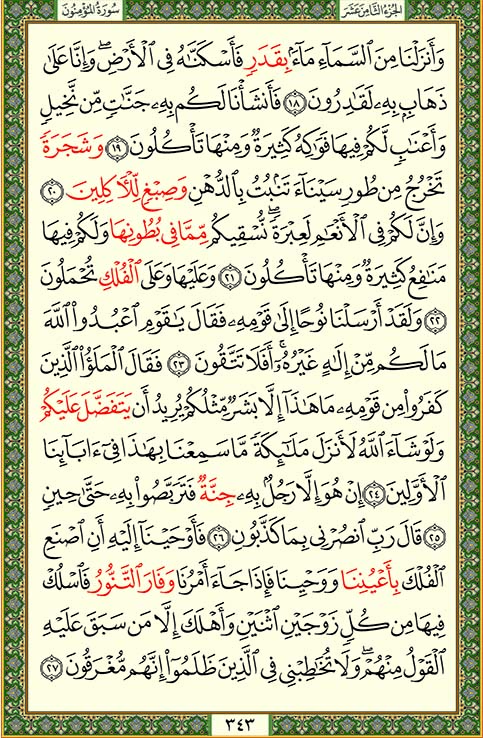 الجزء الثامن عشر
سورة المؤمنون
وَأَنزَلْنَا مِنَ ٱلسَّمَآءِ مَآءًۢ بِقَدَرٍ فَأَسْكَنَّٰهُ فِى ٱلْأَرْضِۖ وَإِنَّا عَلَىٰ
ذَهَابٍۭ بِهِۦ لَقَٰدِرُونَ ١٨ فَأَنشَأْنَا لَكُم بِهِۦ جَنَّٰتٍ مِّن نَّخِيلٍ
وَأَعْنَٰبٍ لَّكُمْ فِيهَا فَوَٰكِهُ كَثِيرَةٌ وَمِنْهَا تَأْكُلُونَ ١٩ وَشَجَرَةً
تَخْرُجُ مِن طُورِ سَيْنَآءَ تَنۢبُتُ بِٱلدُّهْنِ وَصِبْغٍ لِّلْـَٔاكِلِينَ ٢٠
وَإِنَّ لَكُمْ فِى ٱلْأَنْعَٰمِ لَعِبْرَةًۖ نُّسْقِيكُم مِّمَّا فِى بُطُونِهَا وَلَكُمْ فِيهَا
مَنَٰفِعُ كَثِيرَةٌ وَمِنْهَا تَأْكُلُونَ ٢١ وَعَلَيْهَا وَعَلَى ٱلْفُلْكِ تُحْمَلُونَ
٢٢ وَلَقَدْ أَرْسَلْنَا نُوحًا إِلَىٰ قَوْمِهِۦ فَقَالَ يَٰقَوْمِ ٱعْبُدُوا۟ ٱللَّهَ
مَا لَكُم مِّنْ إِلَٰهٍ غَيْرُهُۥٓۚ أَفَلَا تَتَّقُونَ ٢٣ فَقَالَ ٱلْمَلَؤُا۟ ٱلَّذِينَ
كَفَرُوا۟ مِن قَوْمِهِۦ مَا هَٰذَآ إِلَّا بَشَرٌ مِّثْلُكُمْ يُرِيدُ أَن يَتَفَضَّلَ عَلَيْكُمْ
وَلَوْ شَآءَ ٱللَّهُ لَأَنزَلَ مَلَٰٓئِكَةً مَّا سَمِعْنَا بِهَٰذَا فِىٓ ءَابَآئِنَا
ٱلْأَوَّلِينَ ٢٤ إِنْ هُوَ إِلَّا رَجُلٌۢ بِهِۦ جِنَّةٌ فَتَرَبَّصُوا۟ بِهِۦ حَتَّىٰ حِينٍ
٢٥ قَالَ رَبِّ ٱنصُرْنِى بِمَا كَذَّبُونِ ٢٦ فَأَوْحَيْنَآ إِلَيْهِ أَنِ ٱصْنَعِ
ٱلْفُلْكَ بِأَعْيُنِنَا وَوَحْيِنَا فَإِذَا جَآءَ أَمْرُنَا وَفَارَ ٱلتَّنُّورُ فَٱسْلُكْ
فِيهَا مِن كُلٍّ زَوْجَيْنِ ٱثْنَيْنِ وَأَهْلَكَ إِلَّا مَن سَبَقَ عَلَيْهِ
ٱلْقَوْلُ مِنْهُمْۖ وَلَا تُخَٰطِبْنِى فِى ٱلَّذِينَ ظَلَمُوٓا۟ إِنَّهُم مُّغْرَقُونَ ٢٧
٣٤٣